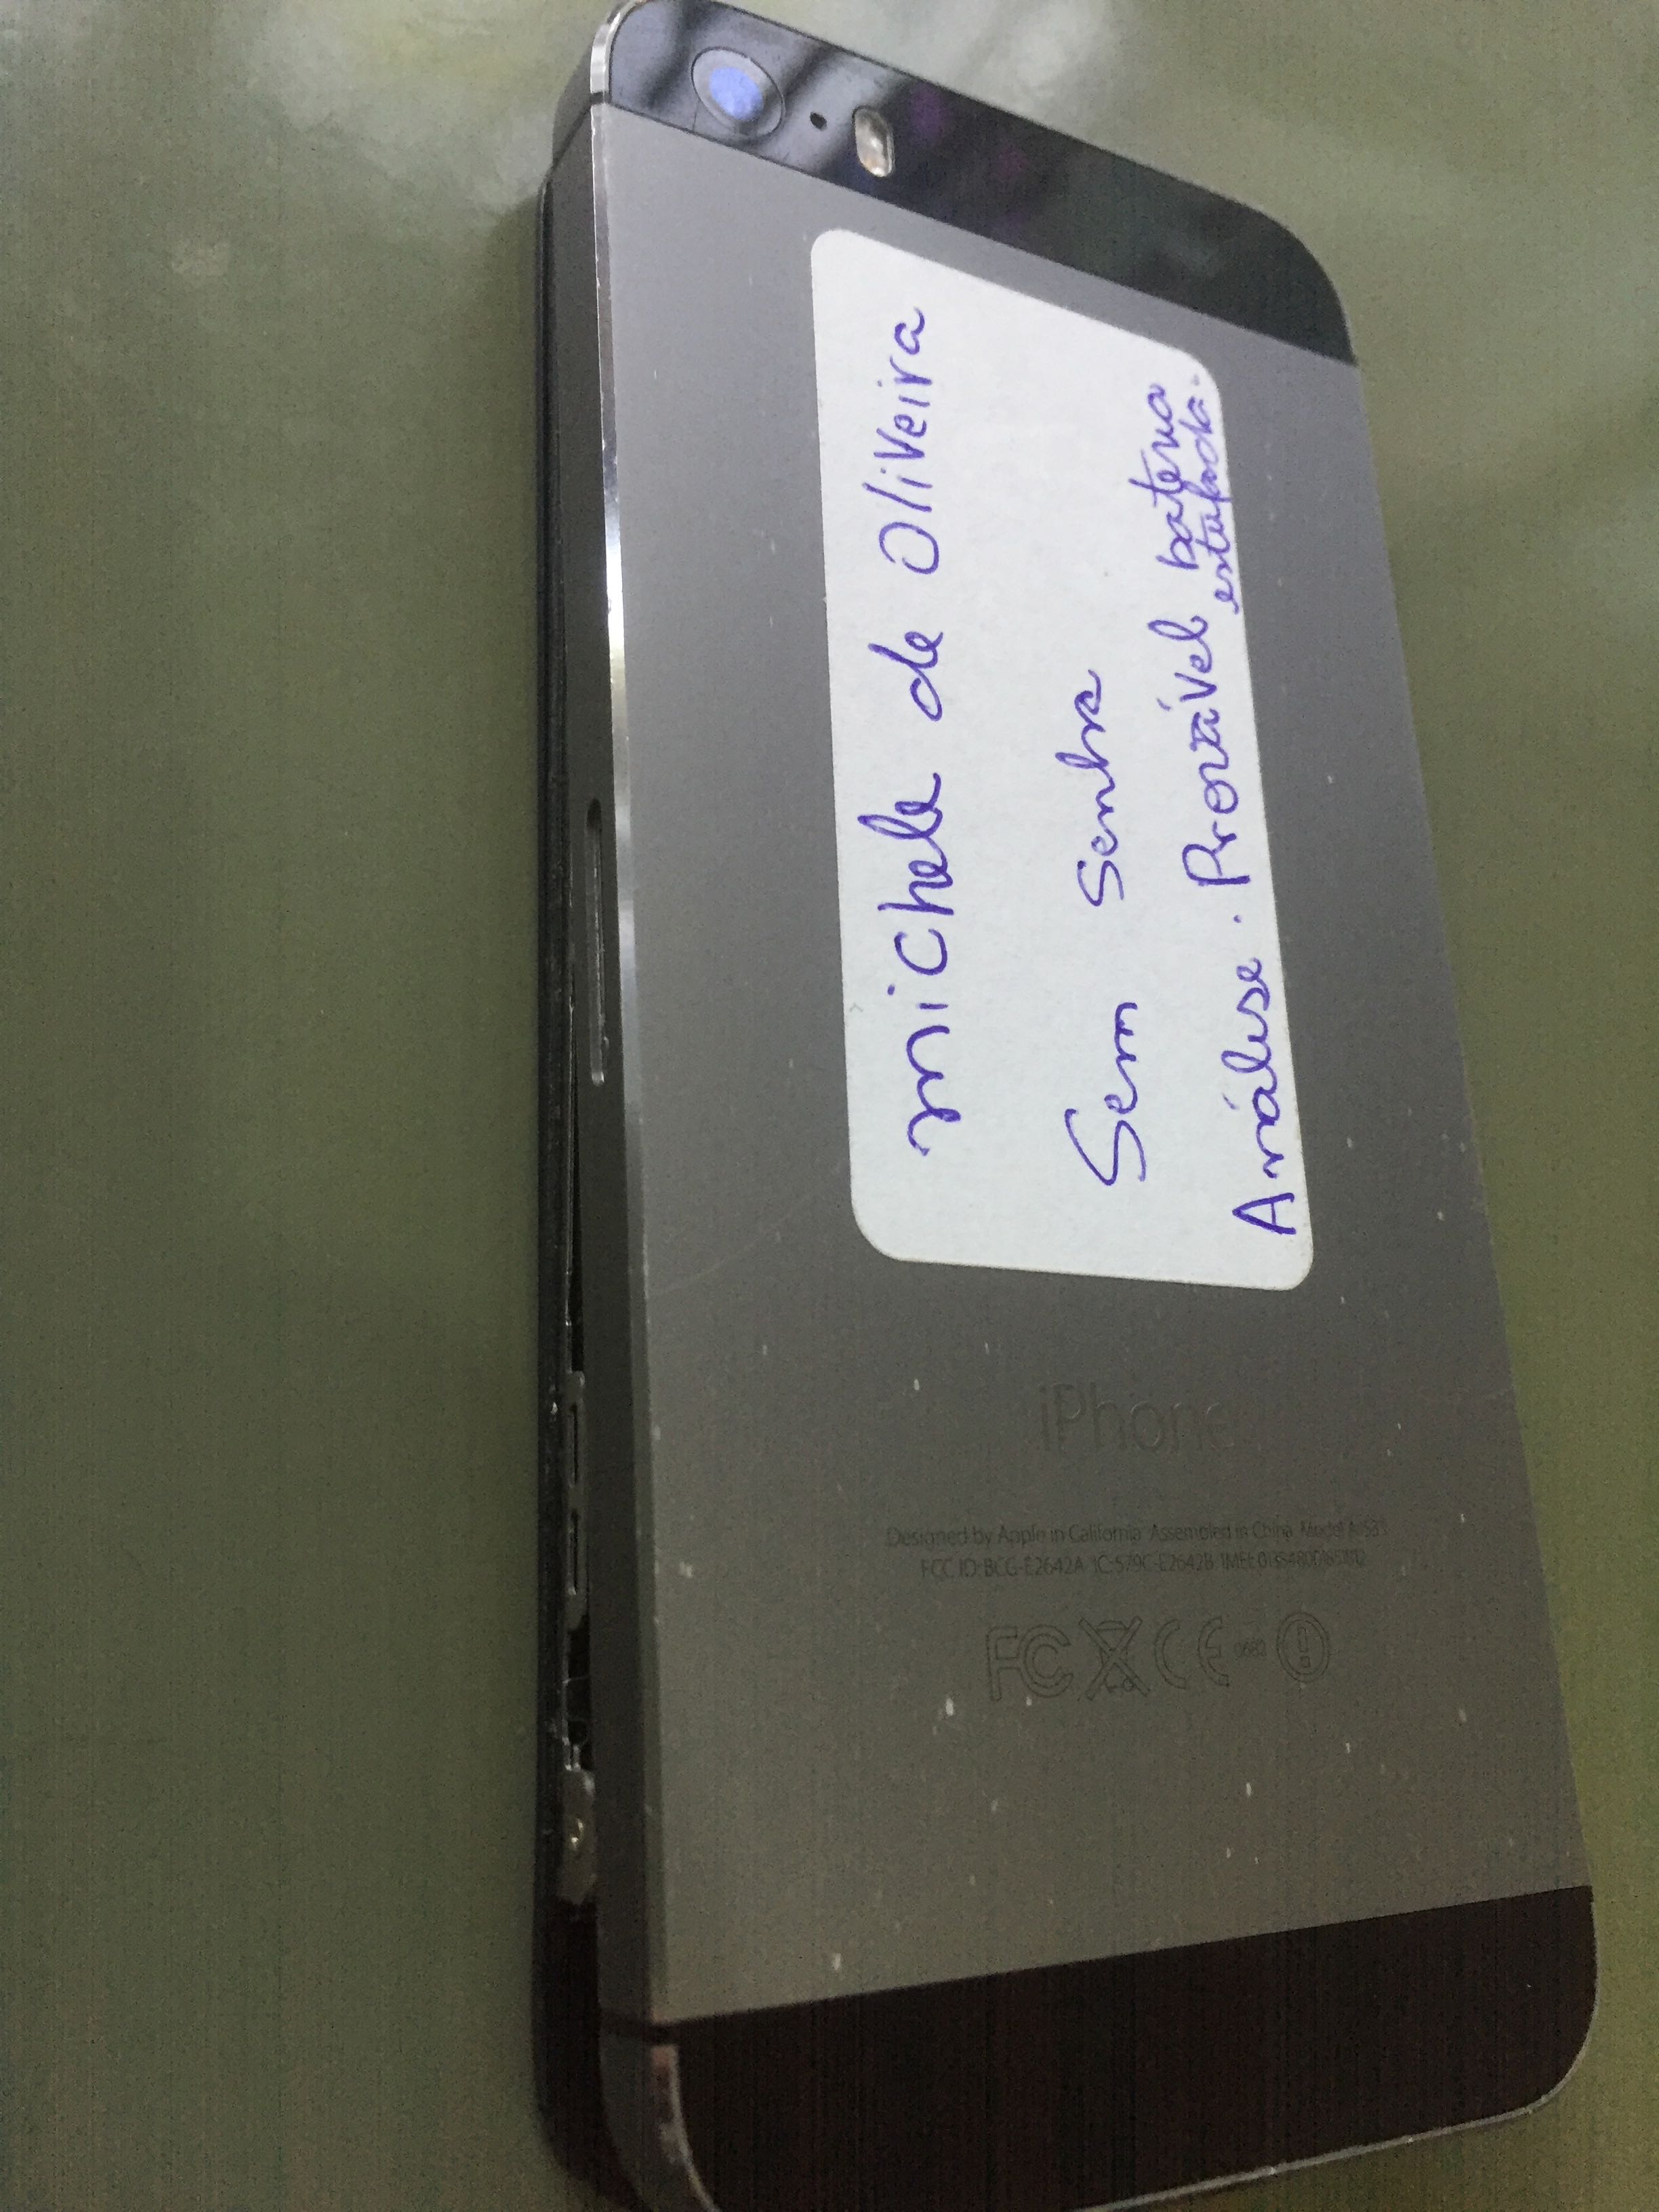 michele de Oliveira
Sem Senha
Análise. Provável bateria
estufada.
iPhone
Designed by Apple in California Assembled in China Model
FCC ID: BCG-E2642A IC: 579C-E2642B IMEI:
FC CE 0682